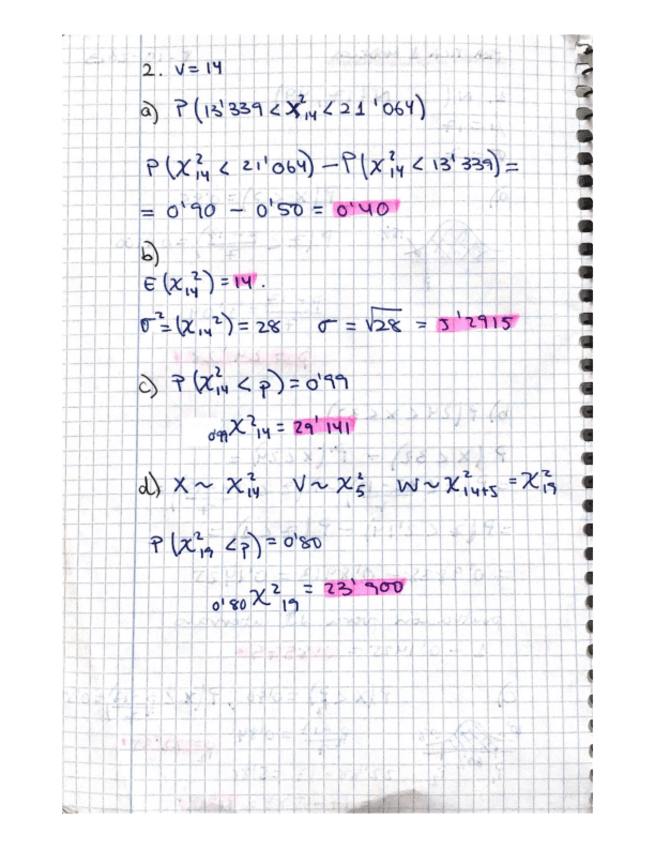 2. V = 14
a) P(13'339 < X²₁₄ < 21'064)
P(X²₁₄ < 21'064) - P(X²₁₄ < 13'339) =
= 0'90 - 0'50 = 0'40
b)
E(X₁₄²) = 14.
σ² = (X₁₄²) = 28 σ = √28 = 5'2915
c) P(X²₁₄ < p) = 0'99
0'99X²₁₄ = 29'141
d) X ~ X²₁₄ V ~ X²₅ W ~ X²₁₄₊₅ = X²₁₉
P(X²₁₉ < p) = 0'80
0'80X²₁₉ = 23'900